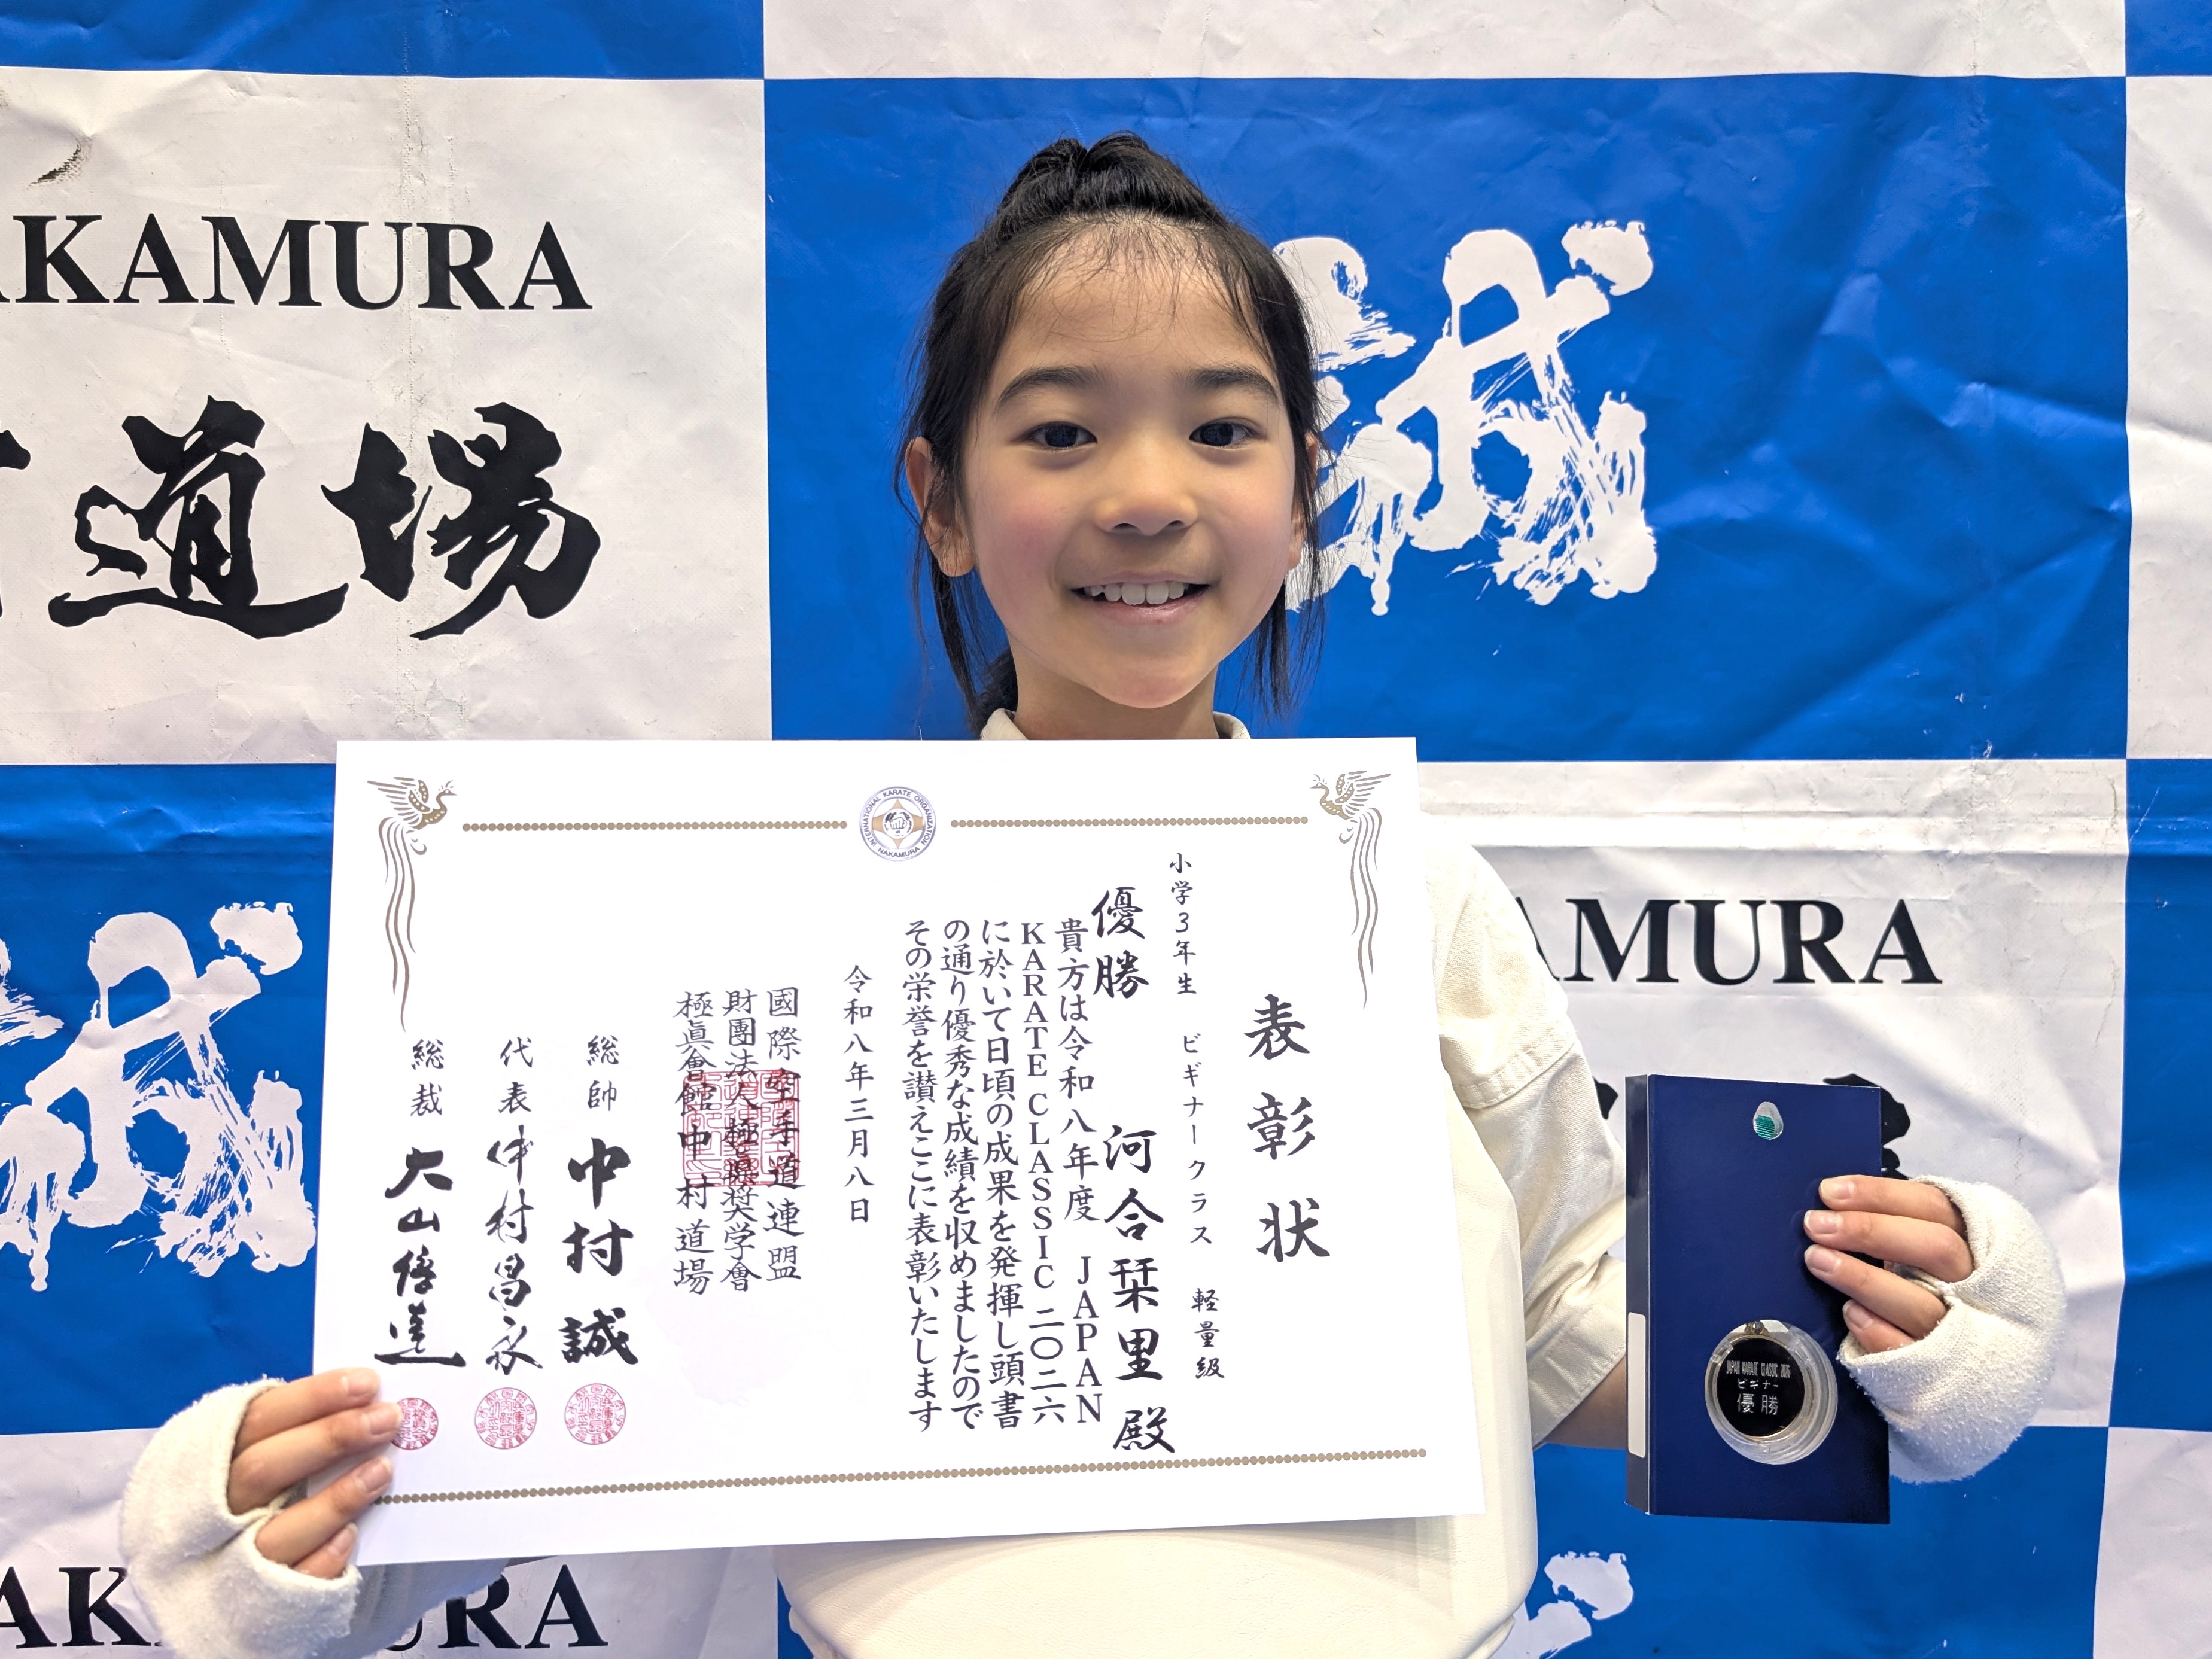 AKAMURA
道場
誠
表彰状
小学3年生 ビギナークラス 軽量級
優勝 河合栞里殿
貴方は令和八年度 JAPAN
KARATE CLASSIC 二〇二六
に於いて日頃の成果を発揮し頭書
の通り優秀な成績を収めましたので
その栄誉を讃えここに表彰いたします
令和八年三月八日
國際空手道連盟
財團法人極真奨学會
極眞會館中村道場
総帥 中村誠
代表 中村昌永
総裁 大山倍達
INTERNATIONAL KARATE ORGANIZATION
NAKAMURA
AMURA
JAPAN KARATE CLASSIC 2026
ビギナー
優勝
誠
AK
URA